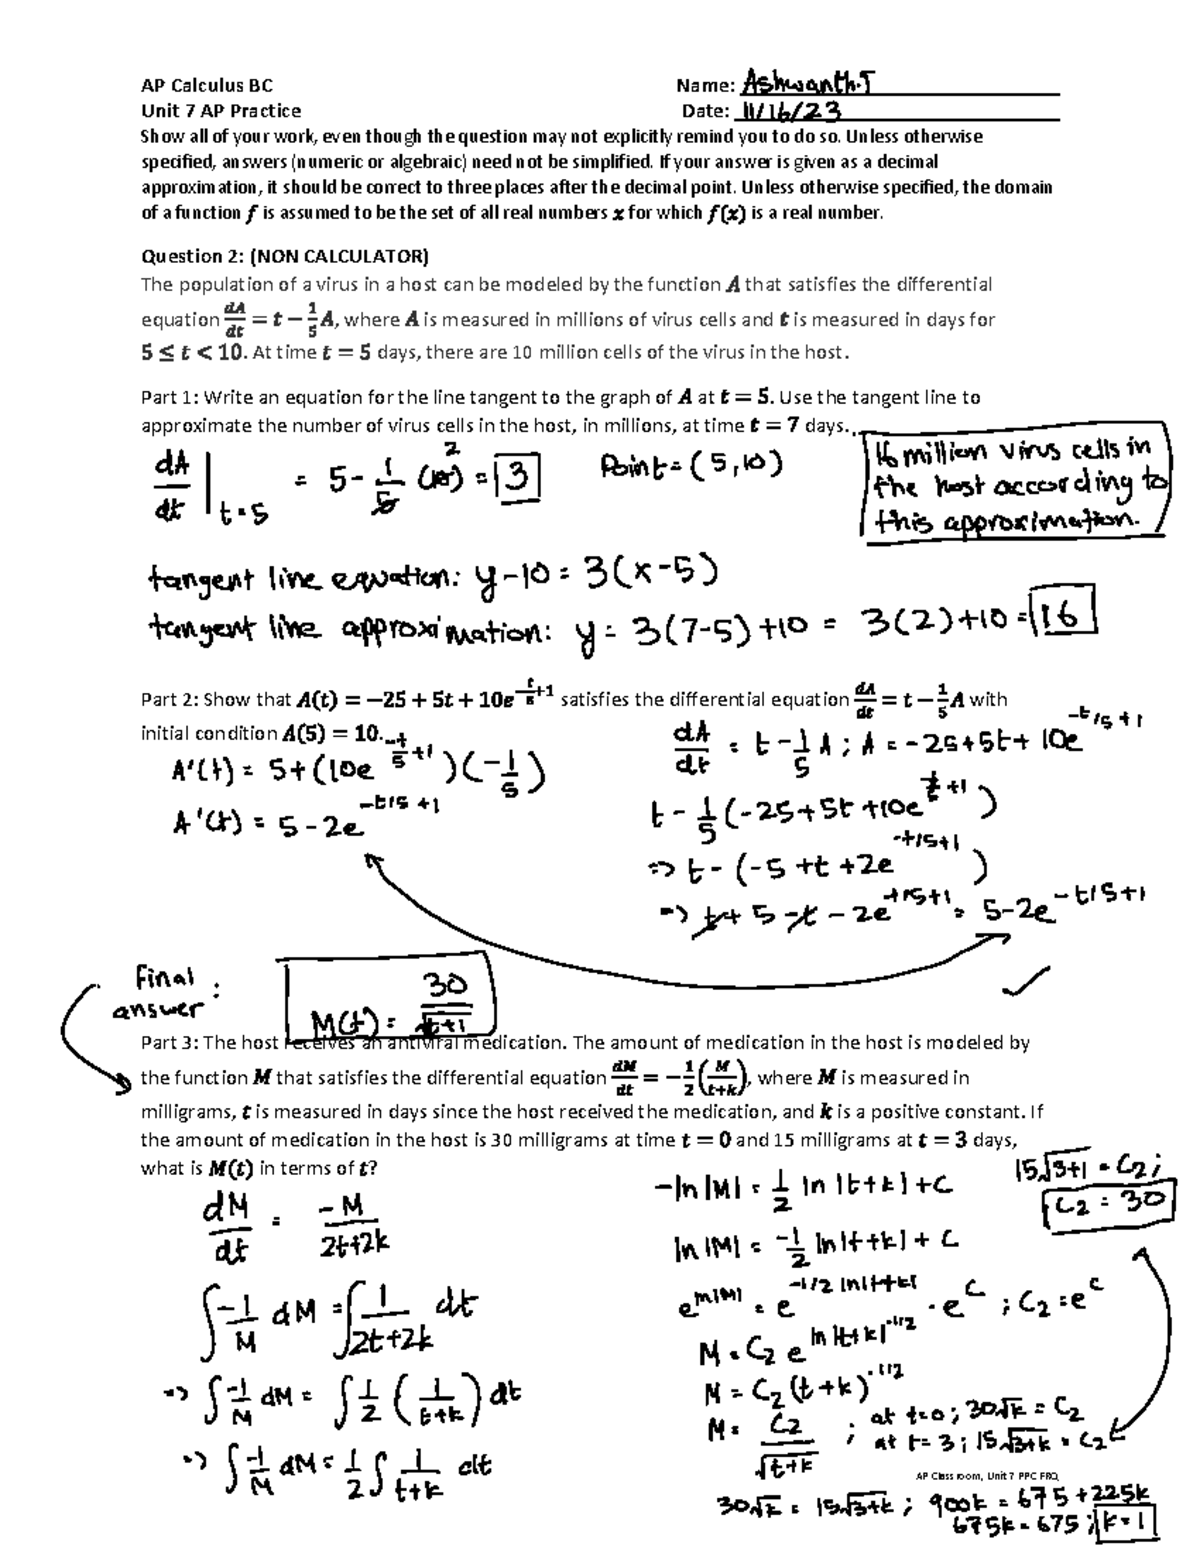 AP Calculus BC Name: Ashwanth.T
Unit 7 AP Practice Date: 11/16/23
Show all of your work, even though the question may not explicitly remind you to do so. Unless otherwise
specified, answers (numeric or algebraic) need not be simplified. If your answer is given as a decimal
approximation, it should be correct to three places after the decimal point. Unless otherwise specified, the domain
of a function f is assumed to be the set of all real numbers x for which f(x) is a real number.
Question 2: (NON CALCULATOR)
The population of a virus in a host can be modeled by the function A that satisfies the differential
equation dA/dt = t − 1/5 A, where A is measured in millions of virus cells and t is measured in days for
5 ≤ t < 10. At time t = 5 days, there are 10 million cells of the virus in the host.
Part 1: Write an equation for the line tangent to the graph of A at t = 5. Use the tangent line to
approximate the number of virus cells in the host, in millions, at time t = 7 days.
16 million virus cells in
the host according to
this approximation.
dA/dt | t=5 = 5 - 1/5 (10) 2 = 3 Point = (5,10)
tangent line equation: y-10 = 3(x-5)
tangent line approximation: y = 3(7-5)+10 = 3(2)+10 = 16
Part 2: Show that A(t) = −25 + 5t + 10e^(-t/5+1) satisfies the differential equation dA/dt = t − 1/5 A with
initial condition A(5) = 10.
A'(t) = 5+(10e^(-t/5+1))(-1/5)
A'(t) = 5-2e^(-t/5+1)
dA/dt = t - 1/5 A ; A = -25+5t+10e^(-t/5+1)
t - 1/5(-25+5t+10e^(t/5+1))
=> t-(-5+t+2e^(-t/5+1))
=> t+5-t-2e^(-t/5+1) = 5-2e^(-t/5+1)
Final answer: M(t) = 30/√(t+1)
Part 3: The host receives an antiviral medication. The amount of medication in the host is modeled by
the function M that satisfies the differential equation dM/dt = −1/2 (M/(t+k)), where M is measured in
milligrams, t is measured in days since the host received the medication, and k is a positive constant. If
the amount of medication in the host is 30 milligrams at time t = 0 and 15 milligrams at t = 3 days,
what is M(t) in terms of t?
dM/dt = -M/(2t+2k)
∫ -1/M dM = ∫ 1/(2t+2k) dt
=> ∫ -1/M dM = ∫ 1/2 (1/(t+k)) dt
=> ∫ -1/M dM = 1/2 ∫ 1/(t+k) dt
-ln|M| = 1/2 ln|t+k|+C
ln|M| = -1/2 ln|t+k|+C
e^(ln|M|) = e^(-1/2 ln|t+k|) · e^C ; C2 = e^C
M = C2 e^(ln|t+k|^(-1/2))
M = C2 (t+k)^(-1/2)
M = C2/√(t+k) ; at t=0 ; 30√k = C2
; at t=3 ; 15√(3+k) = C2
15√(3+1) = C2 ;
C2 = 30
AP Classroom, Unit 7 PPC FRQ,
30√k = 15√(3+k) ; 900k = 675+225k
675k = 675 ; k=1